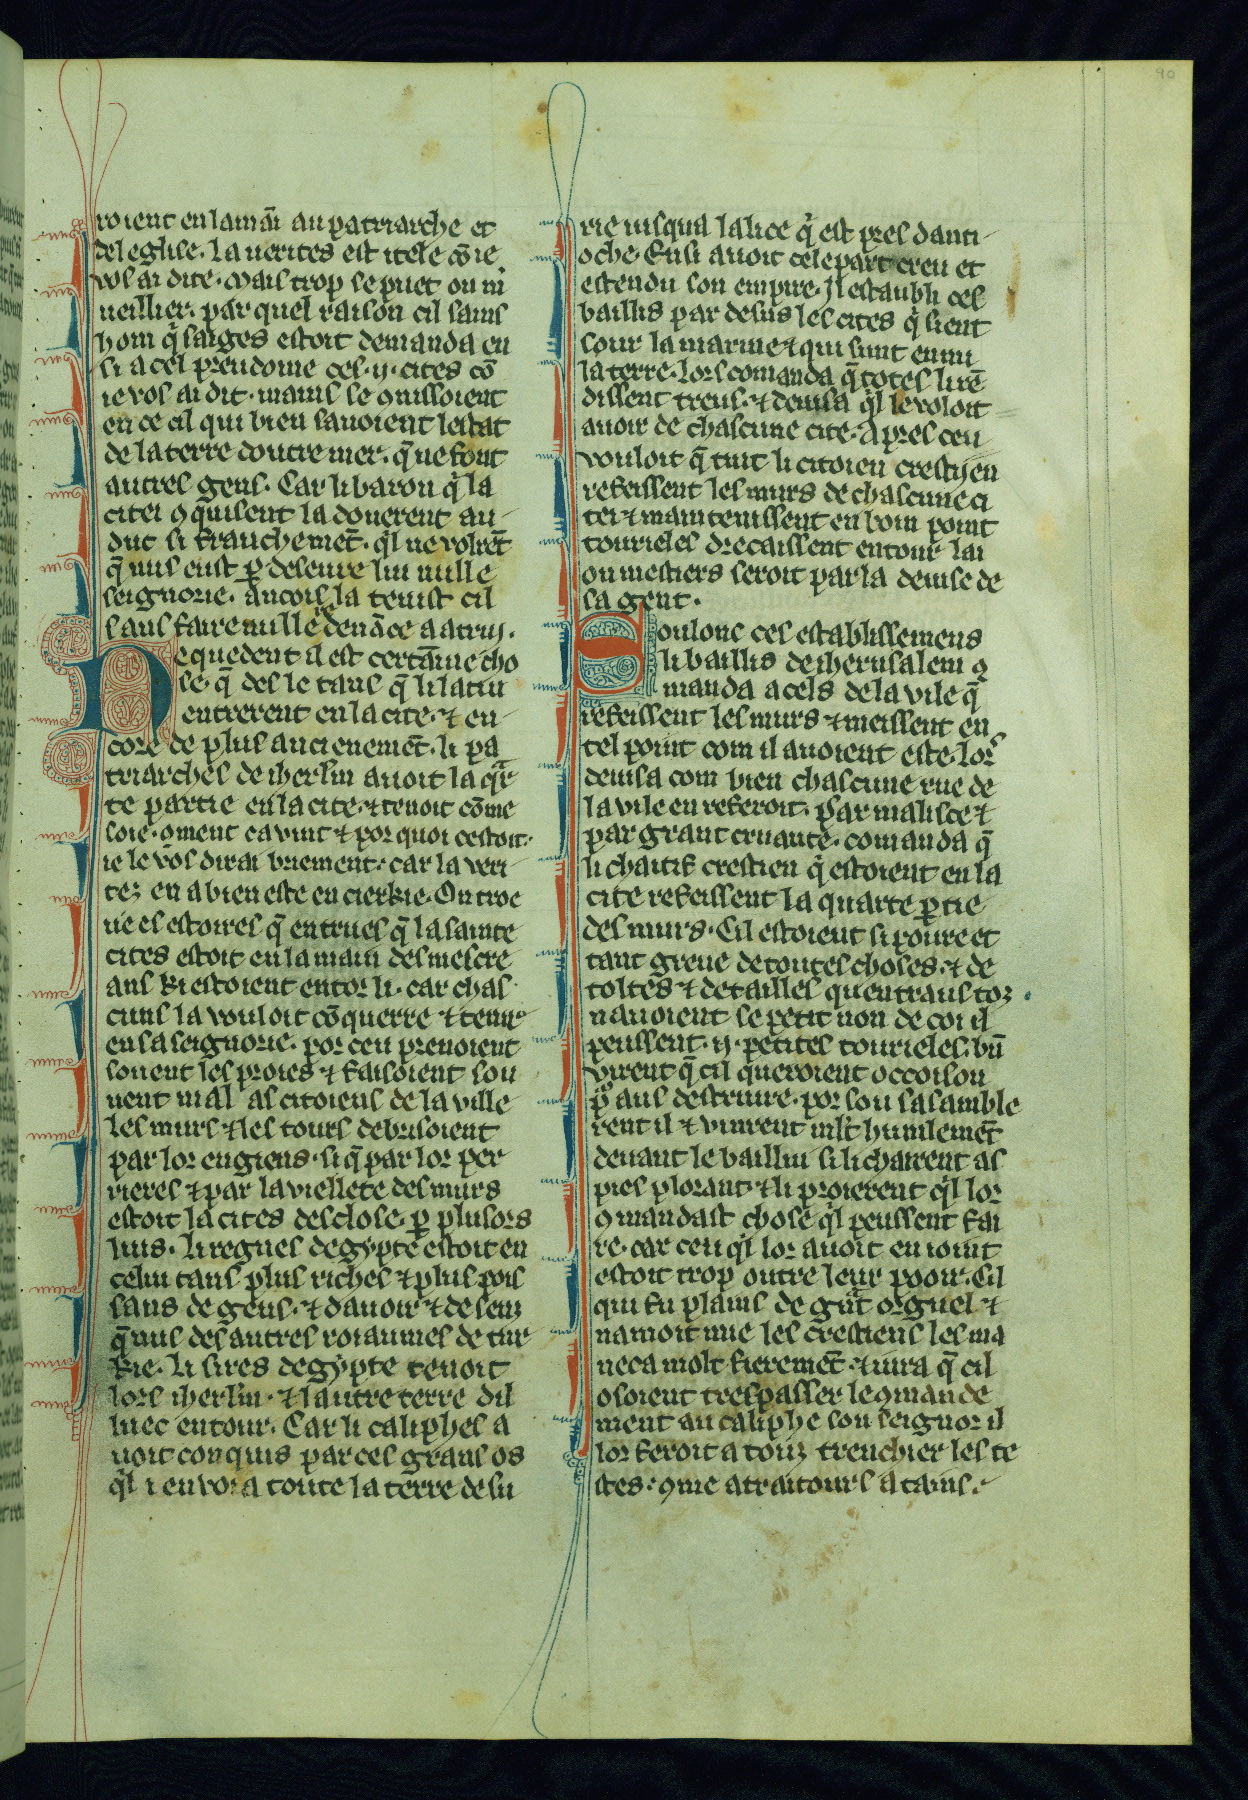 90
roient en la mai͂ au patriarche et
del eglise. La uerites est itele cō ie
vos ai dite. Mais trop se puet on m̾
ueillier. par quel raison cil sains
hom q̾ saiges estoit demanda en
si a cel preudome ces .ij. cites cō
ie vos ai dit. mains se ꝯnissoient
en ce cil qui bien sauoient lestat
de la terre doutre mer. q̄ ne font
autres gens. Car li baron q̾ la
citei ꝯquisent la donerent au
duc si franchemet̄. ql̾ ne volret̄
q̄ nus eust ꝑ deseure lui nulle
seignorie. ancois la tenist cil
sans faire nulle deuāce a atruj.
De quedent il est certāine cho
se. q̄ des le tans q̄ li latin
entrerent en la cite. ⁊ en
core de plus ancienemet̄. li pa
triarches de iherl̄m auoit la qr̾
te partie en la cite. ⁊ tenoit cōme
soie. ꝯment ca vint ⁊ por quoi cestoit.
ie le vos dirai briement. car la veri
tez en a bien este encierkie. On troe
ue es estoires q̄ entrues q̄ la sainte
cites estoit en la main des mescre
ans ki estoient entor li. car chas
cuns la vouloit cōquerre ⁊ tenir
en sa seignorie. por ceu prenoient
souent les proies ⁊ faisoient sou
uent mal as citoiens de la ville
les murs ⁊ les tours debrisoient
par lor engiens. si q̄ par lor per
rieres ⁊ par la viellete des murs
estoit la cites desclose. ꝑ plusors
lius. li regnes degypte estoit en
celui tans plus riches ⁊ plus pois
sans de gens. ⁊ dauoir ⁊ de sen
q̄ nus des autres roiaumes de tur
kie. li sires degypte tenoit
lors iherl̄m. ⁊ lautre terre dil
luec entour. Car li caliphes a
uoit conquis par ces grans os
ql̾ i enuoia toute la terre de su
rie iusqua lalice q̾ est pres danti
oche. Ensi auoit cele part creu et
estendu son empire. Il establi ces
baillis par desus les cites q̾ sient
sour la marine ⁊ qui sunt enmi
la terre. Lors comanda q̄ totes li rē
dissent treus. ⁊ deuisa ql̾ le voloit
auoir de chascune cite. Apres ceu
vouloit q̄ tuit li citoien crestijen
refeissent les murs de chascune ci
tei ⁊ maintenissent en boin point
tourieles drecaissent entour lai
ou mestiers seroit par la deuise de
sa gent.
Soulonc ces establissemens
li baillis de iherusalem ꝯ
manda a cels de la vile q̄
refeissent les murs ⁊ meissent en
tel point com il auoient este. lors
deuisa com bien chascune rue de
la vile en referoit. Par malisce ⁊
par grant cruaute. comanda q̄
li chaitif crestien q̾ estoient en la
cite refeissent la quarte ꝑtie
des murs. Cil estoient si poure et
tant greue de toutes choses. ⁊ de
toltes ⁊ de tailles quentraus toz
nauoient se petit non de coi il
peussent .ij. petites tourieles. bn̄
virent q̄ cil queroient occoison
p̾ aus destruire. por son sasamble
rent il ⁊ vinrent ml̄t humlemet̄
deuant le baillui si li chairent as
pies plorant. ⁊ li proierent ql̾ lor
ꝯmandast chose ql̾ peussent fai
re. car ceu ql̾ lor auoit enioint
estoit trop outre leur pooir. Cil
qui fu plains de gn̾t orguel ⁊
namoit mie les crestiens les ma
neca molt fieremet̄. ⁊ iura q̄ cil
osoient trespasser le ꝯmande
ment au caliphe son seignor il
lor feroit a touz trenchier les te
stes. ꝯme a traitours atains.